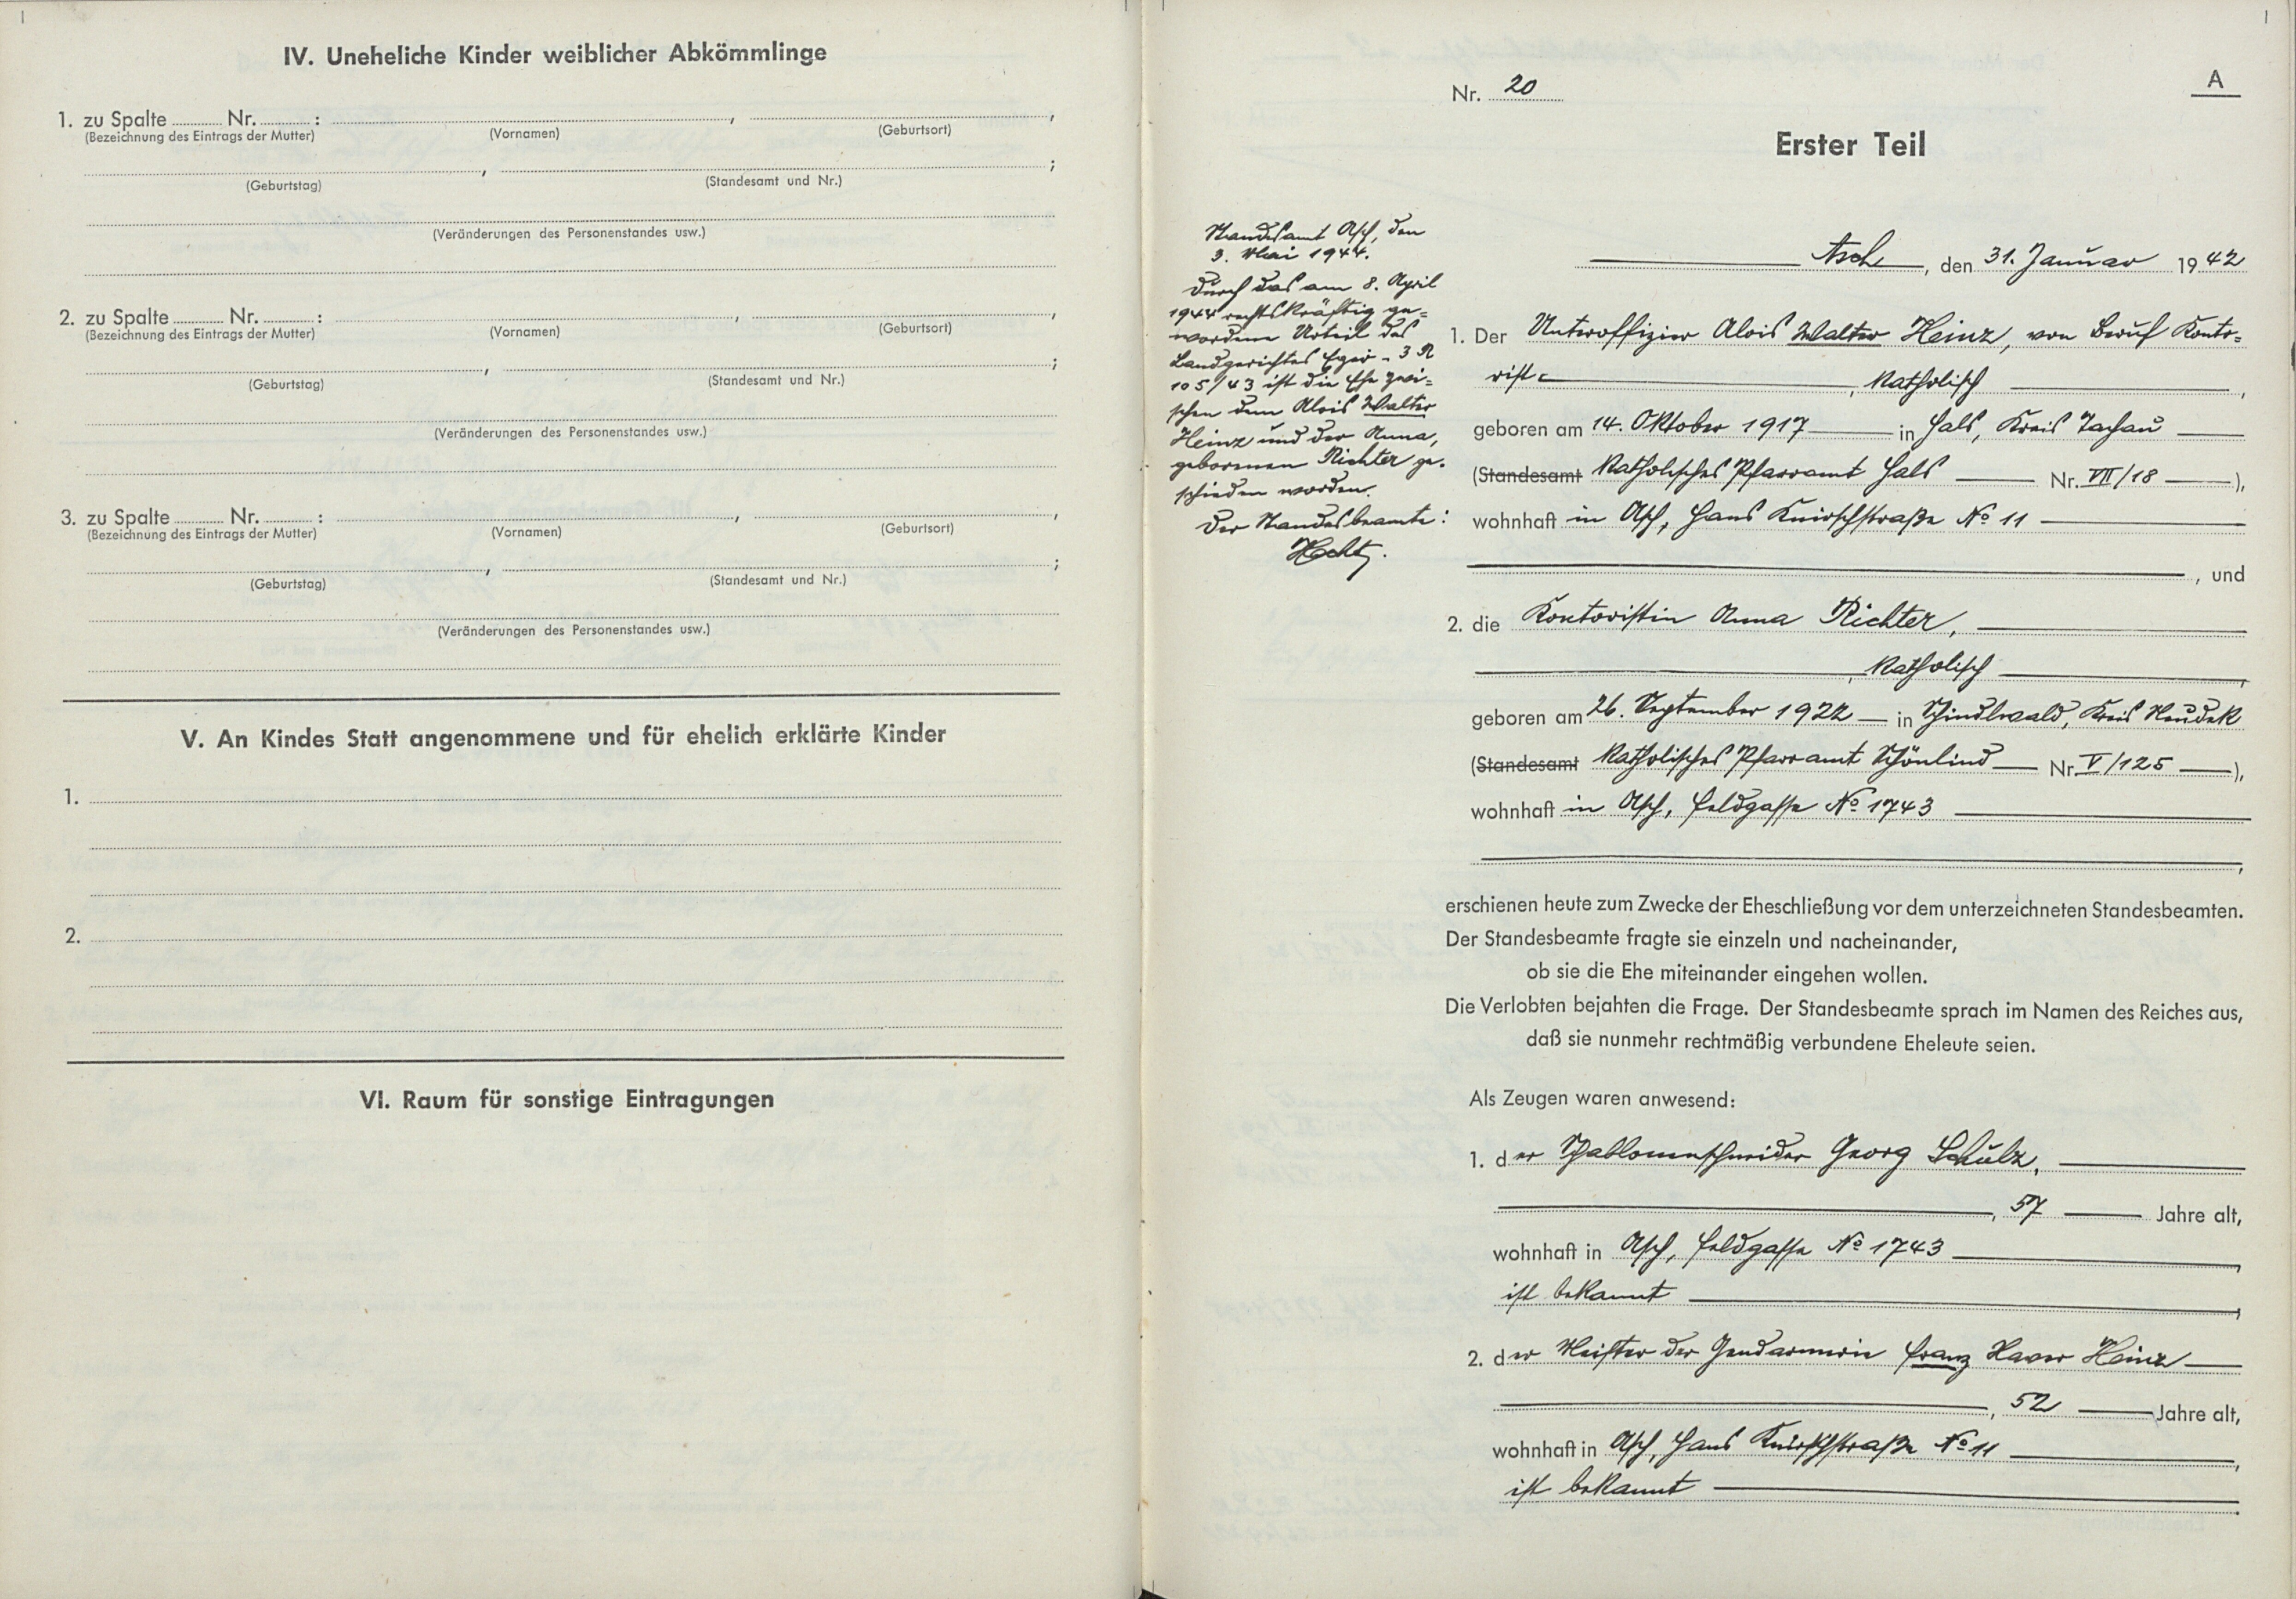 IV. Uneheliche Kinder weiblicher Abkömmlinge
1. zu Spalte ........ Nr. ........ : ........ , ........ ,
(Bezeichnung des Eintrags der Mutter) (Vornamen) (Geburtsort)
........ , ........ ;
(Geburtstag) (Standesamt und Nr.)
(Veränderungen des Personenstandes usw.)
2. zu Spalte ........ Nr. ........ : ........ , ........ ,
(Bezeichnung des Eintrags der Mutter) (Vornamen) (Geburtsort)
........ , ........ ;
(Geburtstag) (Standesamt und Nr.)
(Veränderungen des Personenstandes usw.)
3. zu Spalte ........ Nr. ........ : ........ , ........ ,
(Bezeichnung des Eintrags der Mutter) (Vornamen) (Geburtsort)
........ , ........ ;
(Geburtstag) (Standesamt und Nr.)
(Veränderungen des Personenstandes usw.)
V. An Kindes Statt angenommene und für ehelich erklärte Kinder
1.
2.
VI. Raum für sonstige Eintragungen
A
Nr. 20
Erster Teil
Standesamt Asch, den
3. Mai 1944.
Durch das am 8. April
1944 rechtskräftig ge=
wordene Urteil des
Landgerichtes Eger - 3 R
105/43 ist die Ehe zwi=
schen dem Alois Walter
Heinz und der Anna,
geborenen Richter ge-
schieden worden.
Der Standesbeamte:
Asch, den 31. Januar 1942
1. Der Unteroffizier Alois Walter Heinz, von Beruf Konto=
rist, katholisch,
geboren am 14. Oktober 1917 in Hals, Kreis Tachau
(Standesamt Katholisches Pfarramt Hals Nr. VII/18),
wohnhaft in Asch, Hans Knirschstraße No 11
, und
2. die Kontoristin Anna Richter,
, katholisch,
geboren am 26. September 1922 in Schindlwald, Kreis Neudek
(Standesamt Katholisches Pfarramt Schönlind Nr. V/125),
wohnhaft in Asch, Feldgasse No 1743
,
erschienen heute zum Zwecke der Eheschließung vor dem unterzeichneten Standesbeamten.
Der Standesbeamte fragte sie einzeln und nacheinander,
ob sie die Ehe miteinander eingehen wollen.
Die Verlobten bejahten die Frage. Der Standesbeamte sprach im Namen des Reiches aus,
daß sie nunmehr rechtmäßig verbundene Eheleute seien.
Als Zeugen waren anwesend:
1. der Schablonenschneider Georg Schulz,
, 57 Jahre alt,
wohnhaft in Asch, Feldgasse No 1743,
ist bekannt,
2. der Meister der Gendarmerie Franz Xaver Heinz
, 52 Jahre alt,
wohnhaft in Asch, Hans Knirschstraße No 11,
ist bekannt